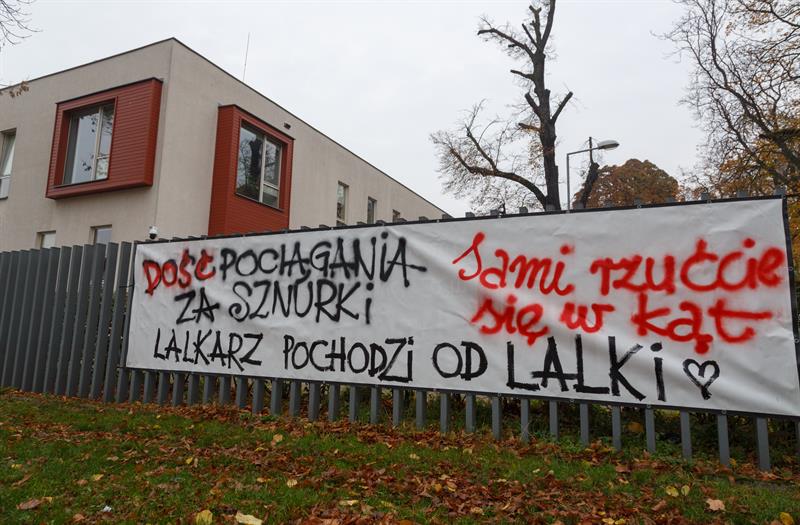 DOŚĆ POCIĄGANIA
ZA SZNURKi
LALKARZ POCHODZi OD LALKi
Sami rzućcie
się w kąt!